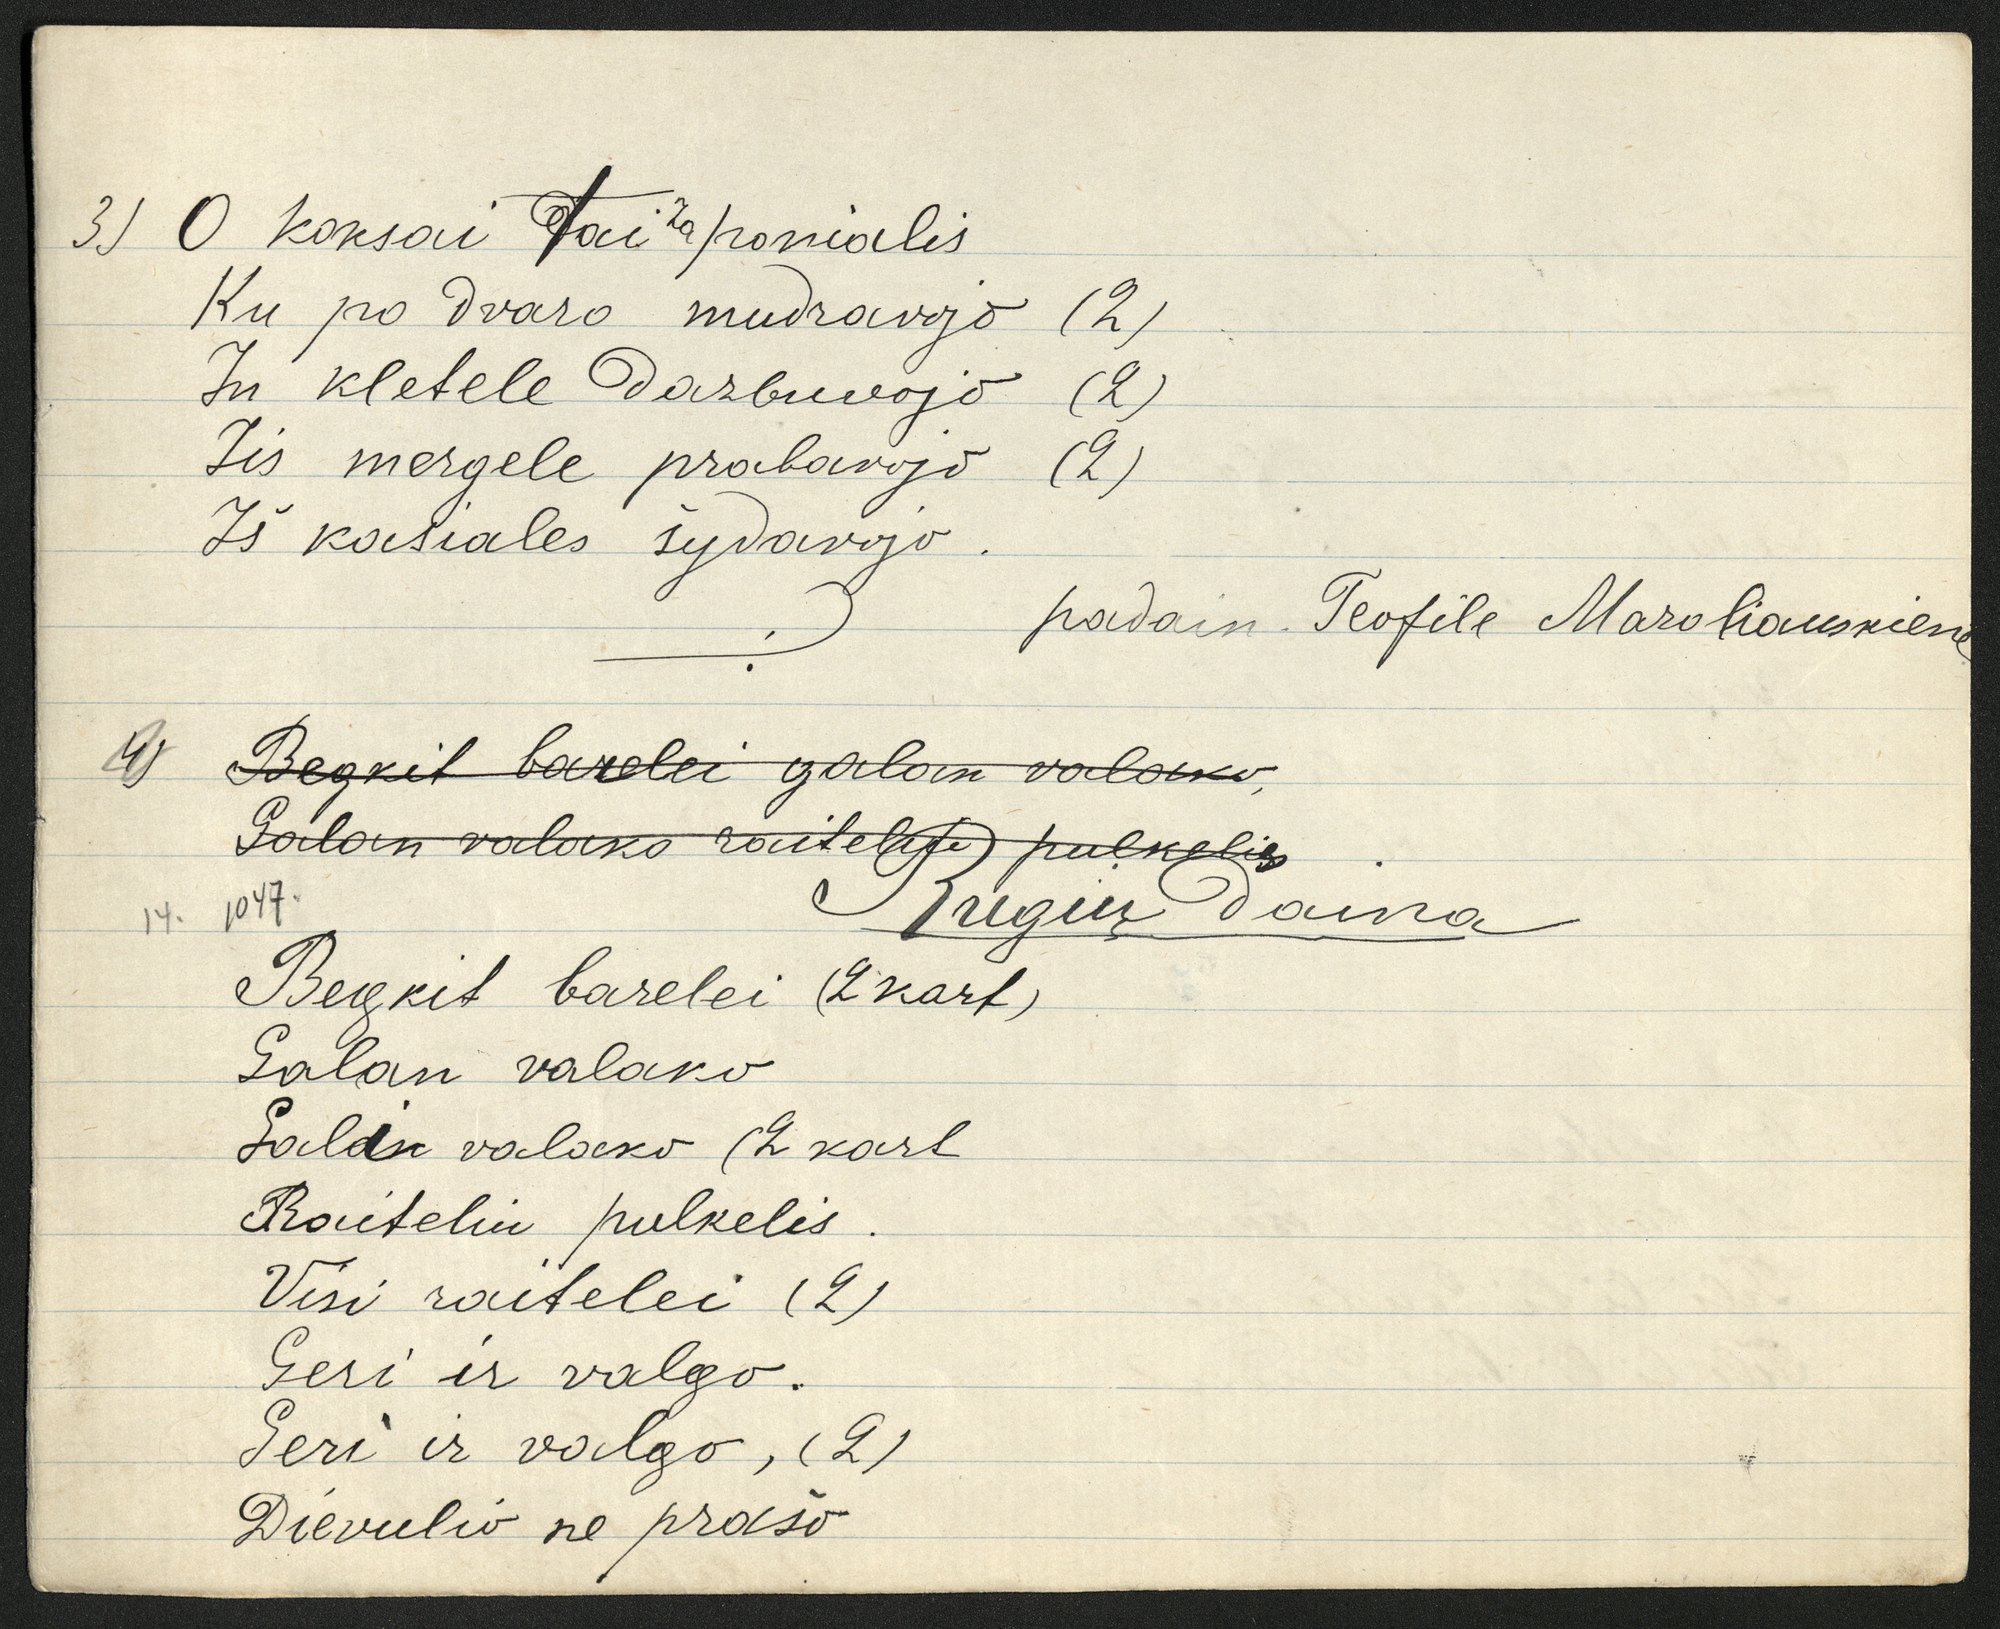 3) O koksai tai za ponialis
Ku po dvaro mudravojo (2)
In kletele darbuvojo (2)
Jis mergele prabavojo (2)
Iš kasiales šydavojo.
padain. Teofile Maroliauskiene
4) Begkit barelei galan valako,
Galan valako raiteliu pulkelis.
14. 1047. Rugių daina
Begkit barelei (2 kart)
Galan valako
Galan valako (2 kart
Raiteliu pulkelis.
Visi raitelei (2)
Geri ir valgo.
Geri ir valgo, (2)
Dievulio ne prašo